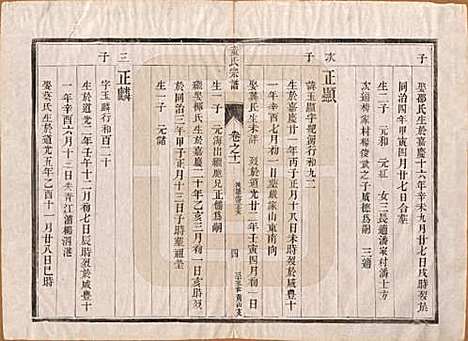 子
娶鄒氏生於嘉慶十六年辛未九月廿七日戌時歿於
同治四年甲寅四月廿七日合葬
生二子 元和 元紅 女三長適潘家村潘士方
次適 家村楊俊武之子威德為嗣 三適
次 正顯
子
諱玉顯字 行和九二
生於嘉慶廿一年丙子五月十八日未時歿於咸豐十
一年辛酉七月初一日葬 家山東南向
娶龔氏生 年 歿於道光廿二年壬寅四月初一日
生一子 元海出繼 兄正 為嗣
繼娶 氏生於嘉慶二十年乙亥三月初 歿
於同治三年甲子正月十三日子時葬
生一子 元鍺
童氏宗譜
卷之十一
四
三 正麟
子
字玉麟行和百二十
生於道光二年壬午十二月初七日辰時歿於咸豐十
一年辛酉六月十三日未 青江 楊泗港
娶葉氏生於道光五年乙酉十一月廿八日巳時